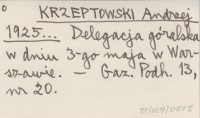 KRZEPTOWSKI Andrzej
1925... Delegacja góralska
w dniu 3-go maja w War-
szawie. — Gaz. Podh. 13,
nr 20.